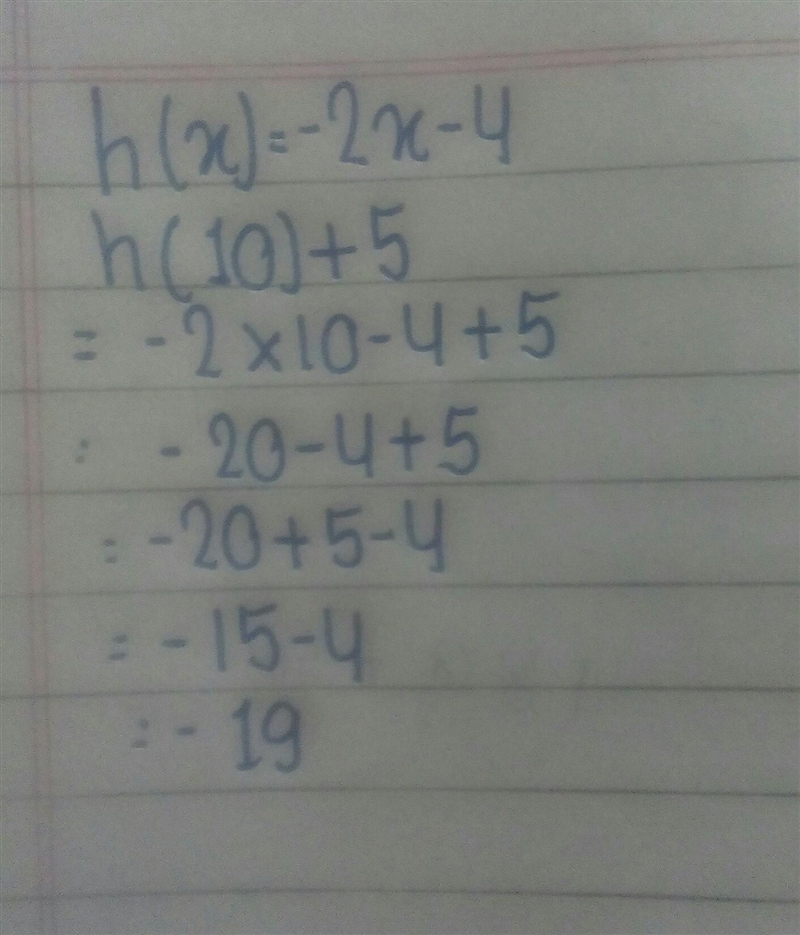 h(x)=-2x-4
h(10)+5
= -2×10-4+5
= -20-4+5
= -20+5-4
= -15-4
= -19